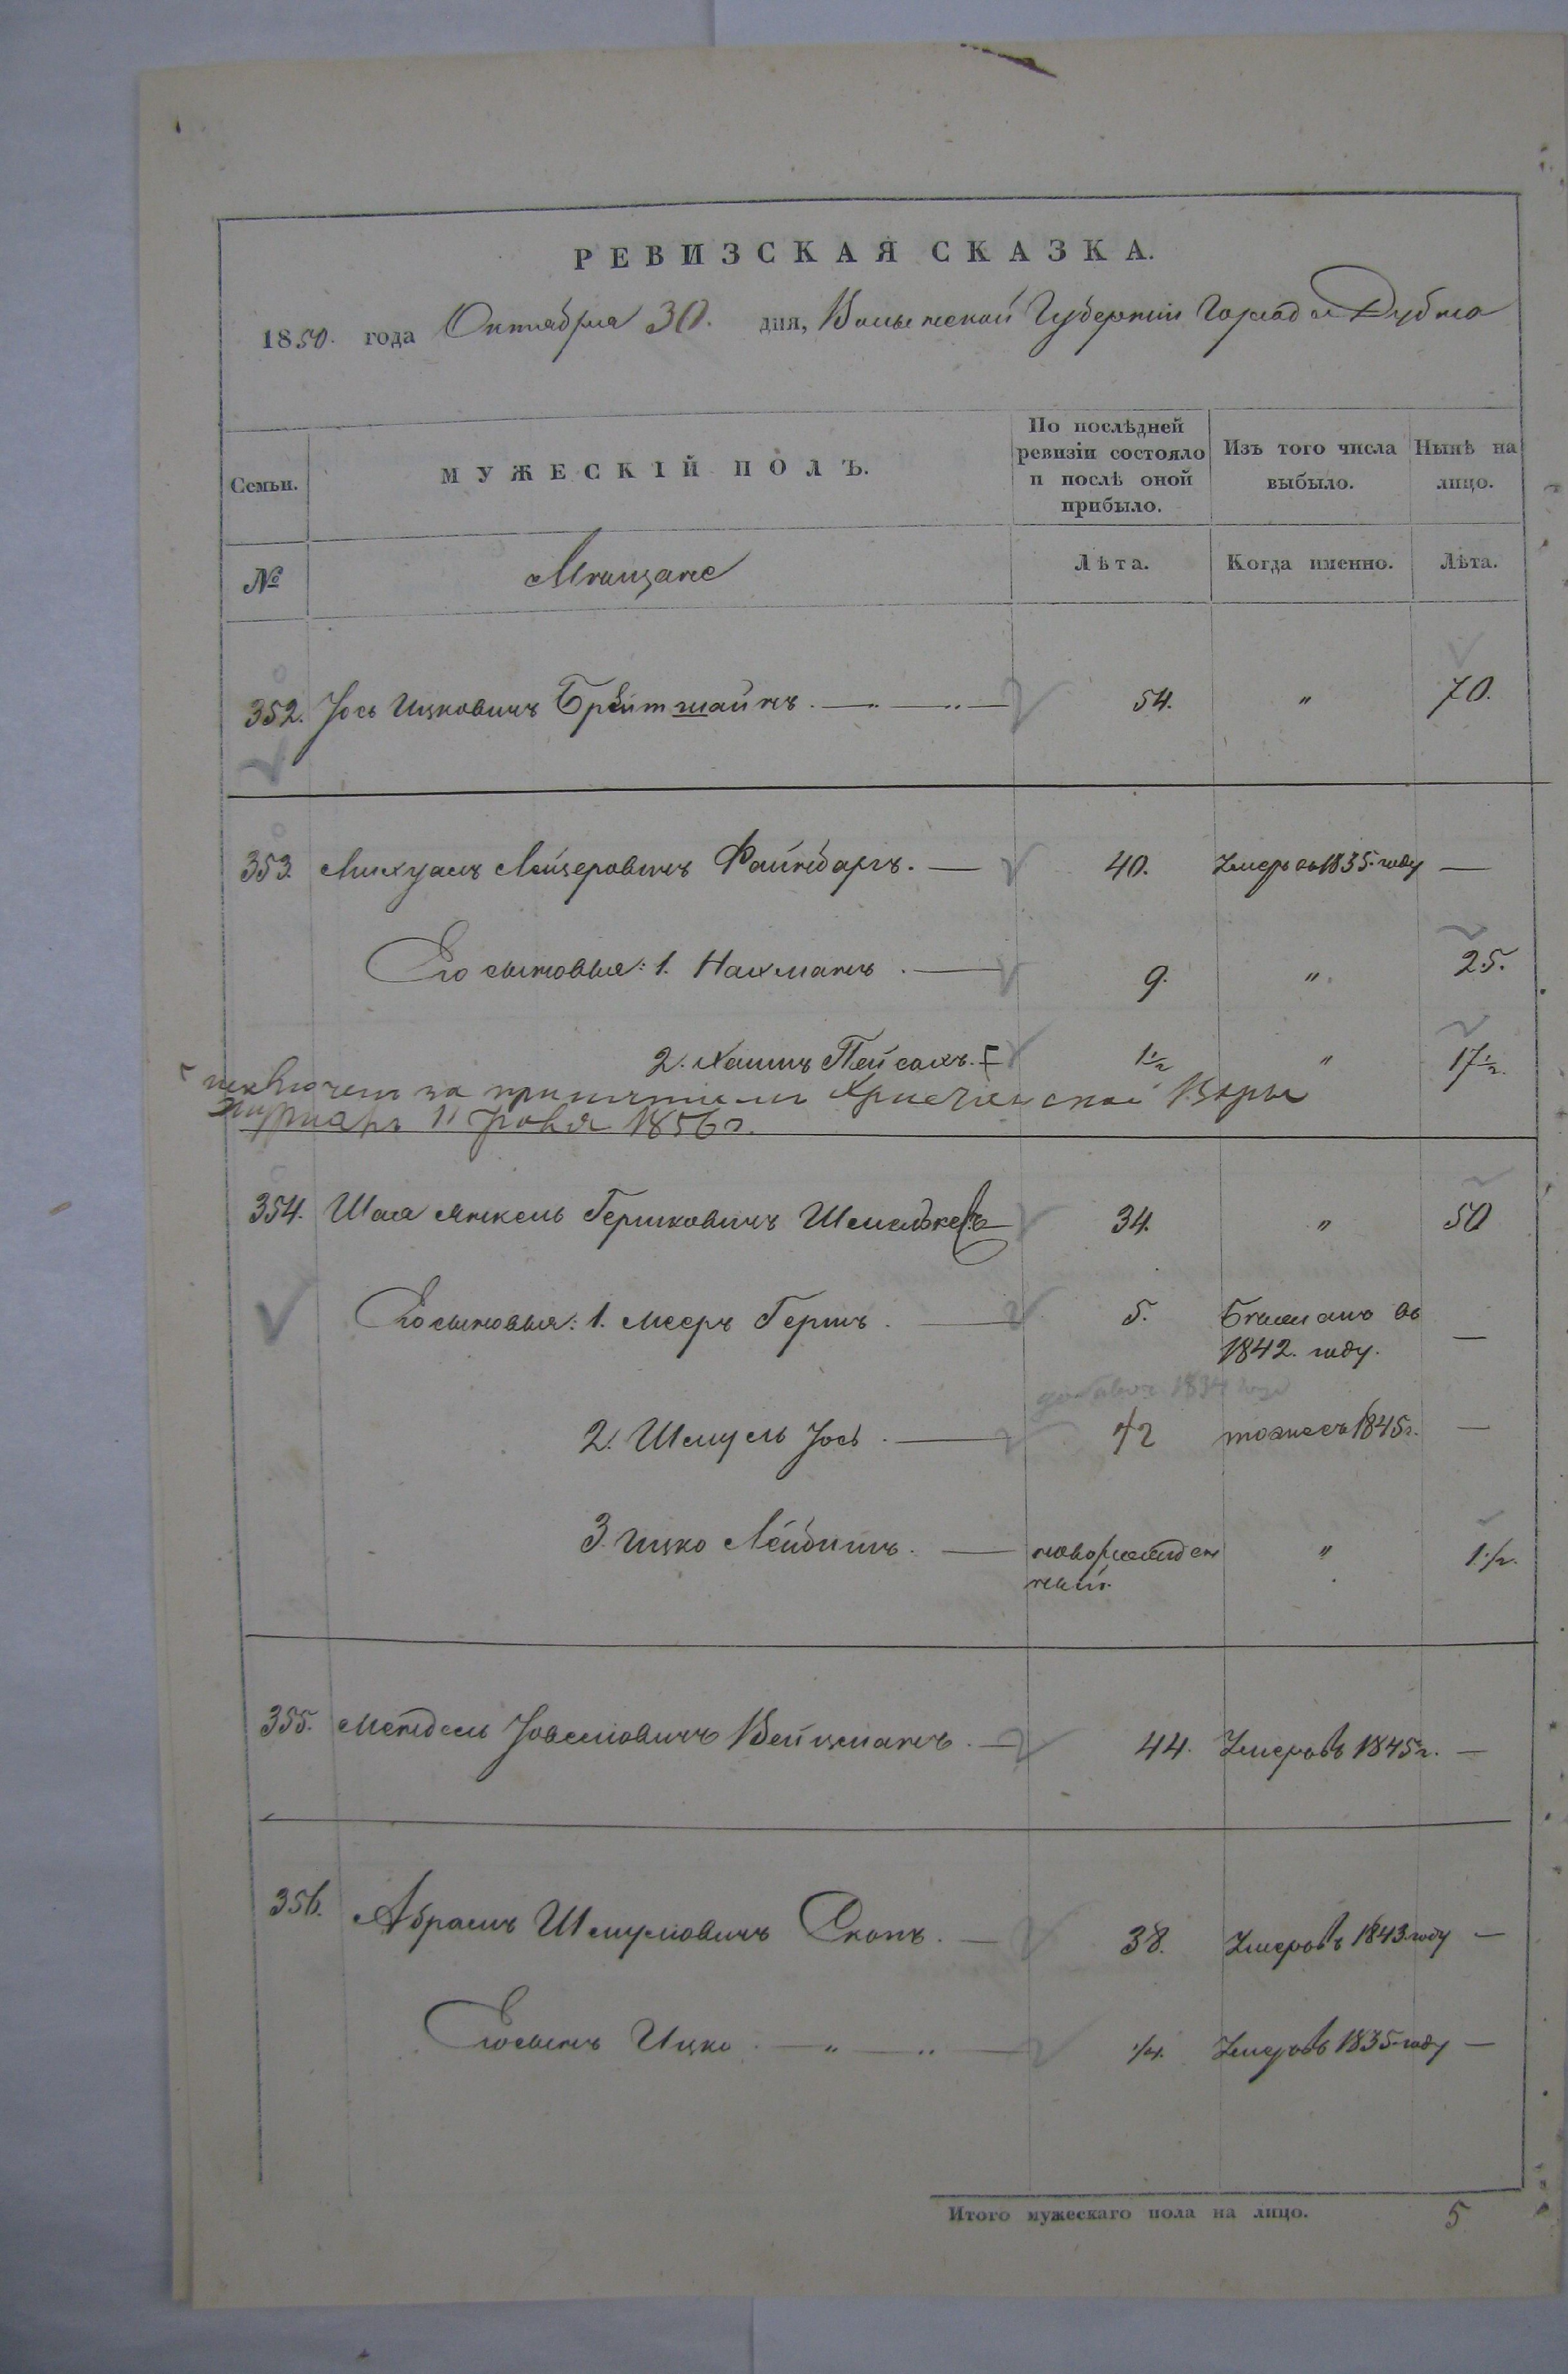 РЕВИЗСКАЯ СКАЗКА.
1850. года Октября 30. дня, Волынской Губерніи Города Дубно
Семьи.
МУЖЕСКІЙ ПОЛЪ.
По послѣдней ревизіи состояло и послѣ оной прибыло.
Изъ того числа выбыло.
Нынѣ на лицо.
№
Мѣщане
Лѣта.
Когда именно.
Лѣта.
352. Іось Ицковичъ Брейтшайнъ. 54. " 70.
353. Михуалъ Лейзеровичъ Файнбаргъ. — 40. Умеръ въ 1835 году —
Его сыновья: 1. Нахманъ. — 9. " 25.
2. Хаимъ Пейсахъ. 1½ " 17½.
исключенъ за принятіемъ Христіянской Вѣры
11 1856 г.
354. Шая Янкель Гершковичъ 34. " 50
Его сыновья: 1. Мееръ Гершъ. — 5. Бѣжалъ въ
1842. году. —
1834
2. Шмуль Іось. — ½ тоже съ 1845 г. —
3. Ицко Лейбишъ. — новорожден " 1½.
ный.
355. Мендель Іовелiовичъ Вейцманъ. — 44. Умеръ въ 1845 г. —
356. Абрамъ Шмулiовичъ Скопъ. — 38. Умеръ въ 1843 году —
Его сынъ Ицко. — " — " — ¼. Умеръ въ 1835 году —
Итого мужескаго пола на лицо. 5